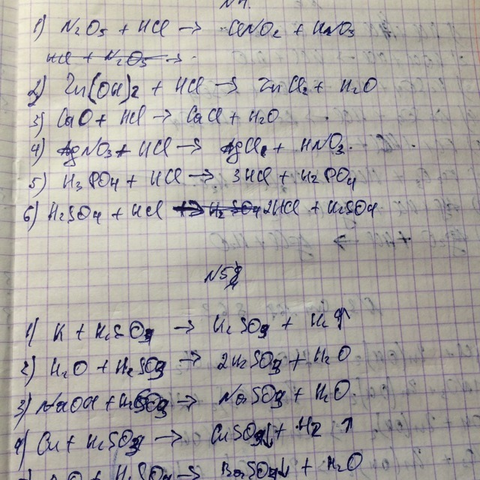 N4.
1) N₂O₅ + HCl → ClNO₂ + HNO₃
HCl + N₂O₅ →
2) Zn(OH)2 + HCl → ZnCl₂ + H₂O
3) CaO + HCl → CaCl + H₂O
4) AgNO₃ + HCl → AgCl + HNO₃.
5) H₃PO₄ + HCl → 3HCl + H₂PO₄
6) H₂SO₄ + HCl → 2HCl + H₂SO₄
N5
1) K + H₂SO₄ → H₂SO₄ + H₂↑
2) H₂O + H₂SO₄ → 2H₂SO₄ + H₂O
3) NaOH + H₂SO₄ → NaSO₄ + H₂O
4) Cu + H₂SO₄ → CuSO₄↓ + H2 ↑
O + H₂SO₄ → BaSO₄↓ + H₂O